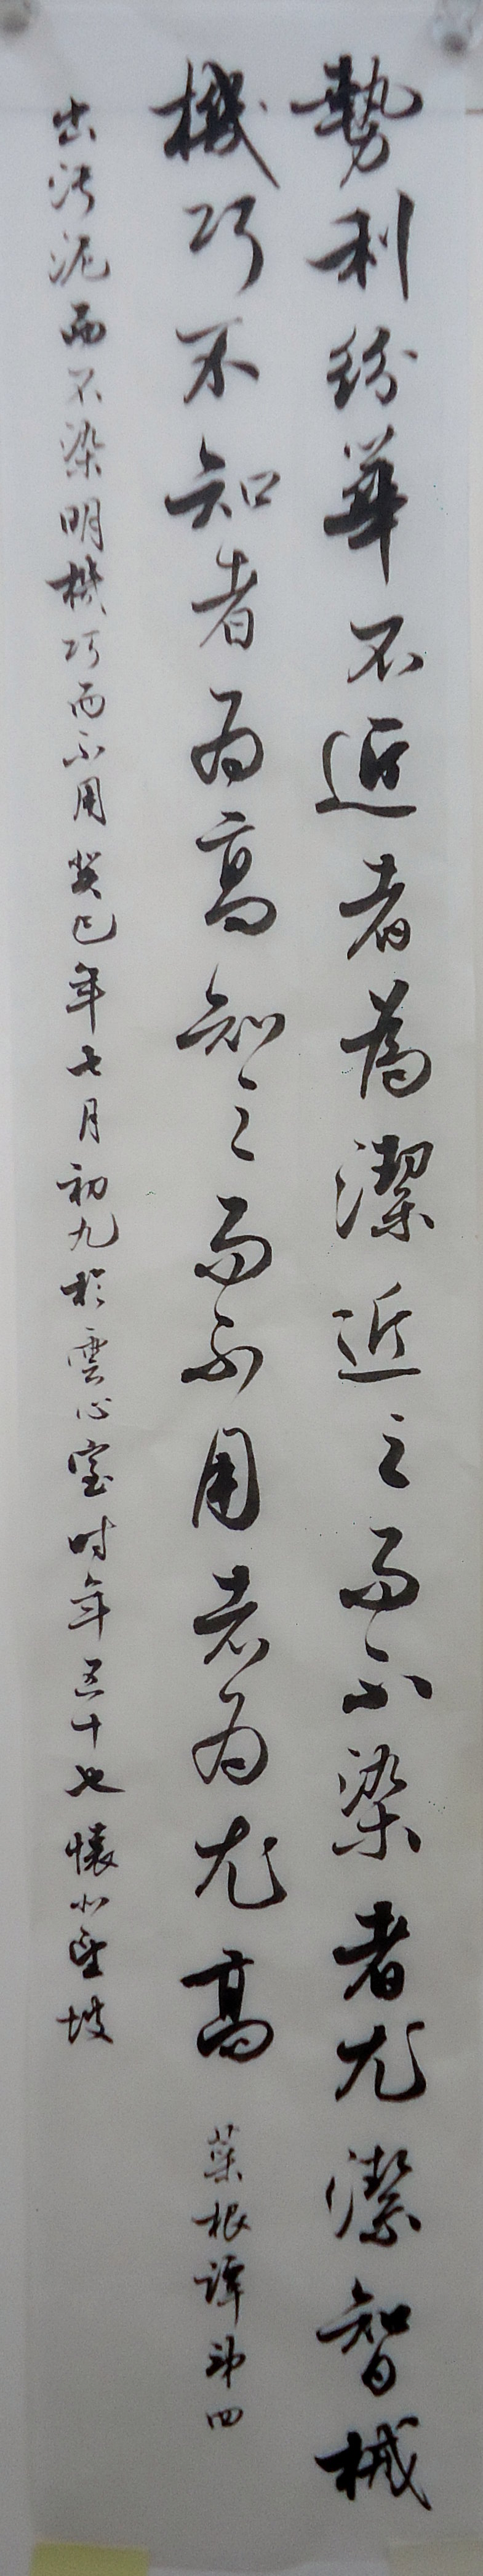 勢利紛華不近者為潔近之而不染者尤潔智械
機巧不知者為高知之而不用者為尤高
菜根譚第四
出污泥而不染明機巧而不用癸巳年七月初九於雲心室时年五十七懷小